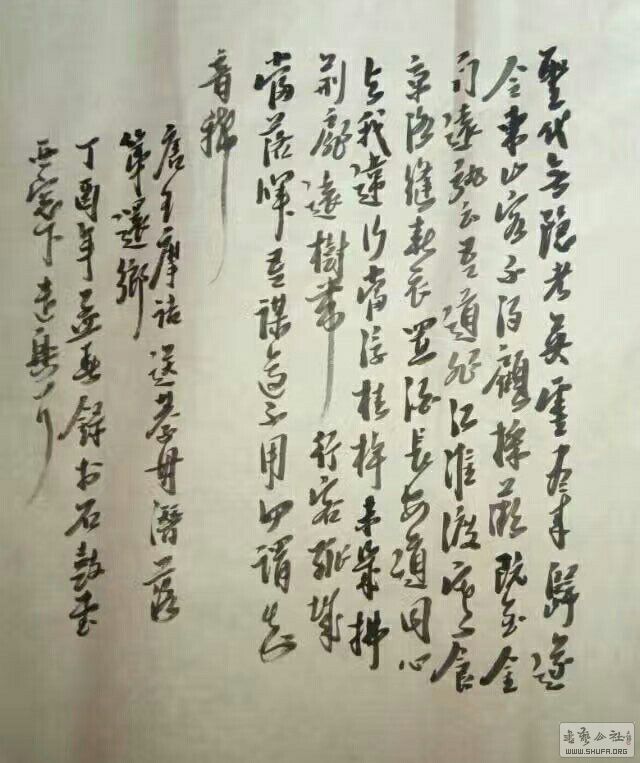 聖代無隐者英靈尽来歸遂
令東山客不得顧採薇既至金
门遠孰云吾道非江淮渡寒食
京洛縫春衣置酒長安道同心
与我違行當浮桂棹未幾拂
荊扉遠樹帶行客孤城
當落暉吾謀適不用勿謂知
音稀
唐王摩詰送綦毋潛落
第還鄉
丁酉年孟春録於石鼓堂
西窓下
书艺公社
WWW.SHUFA.ORG